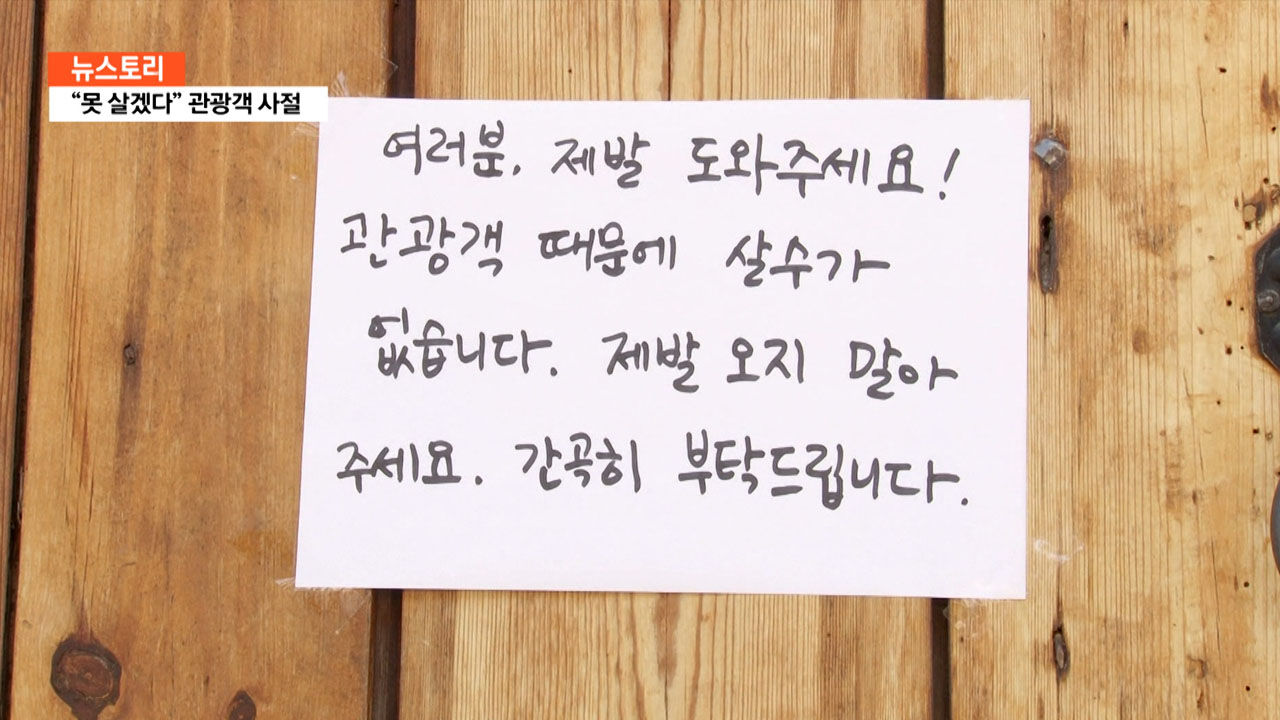 뉴스토리
“못 살겠다” 관광객 사절
여러분, 제발 도와주세요!
관광객 때문에 살수가
없습니다. 제발 오지 말아
주세요. 간곡히 부탁드립니다.